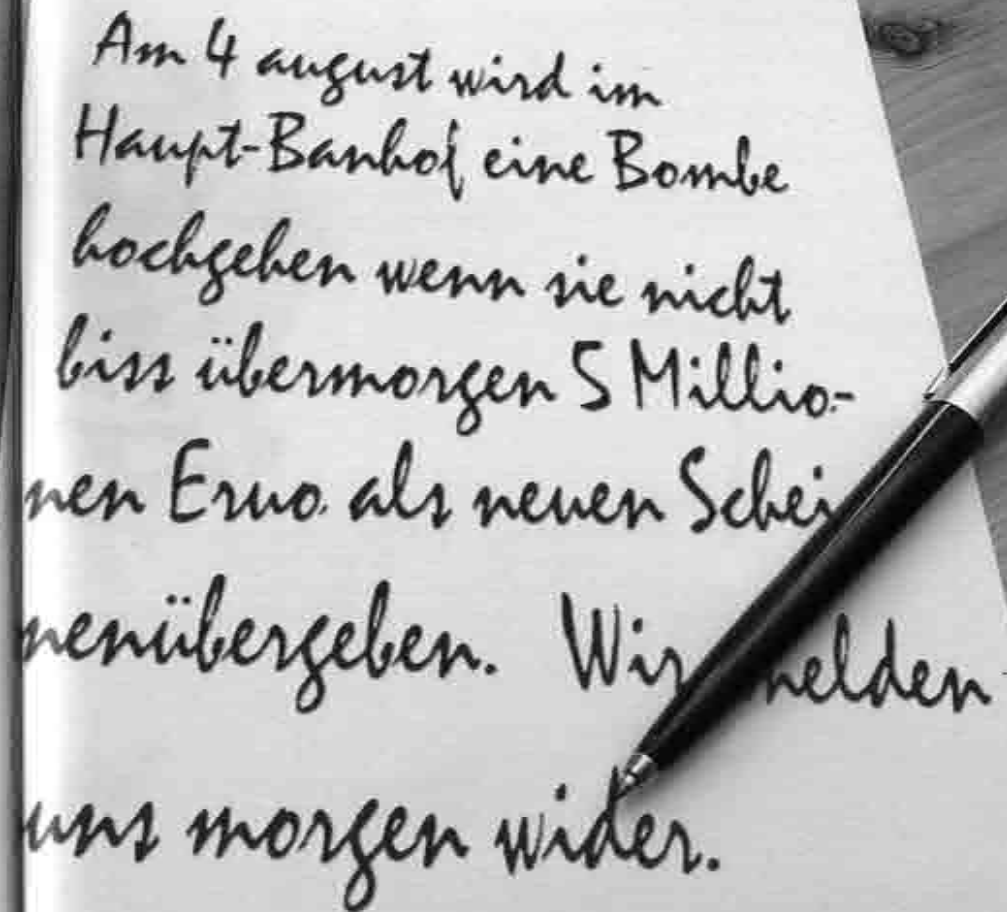 Am 4 august wird im
Haupt-Banhof eine Bombe
hochgehen wenn sie nicht
biss übermorgen 5 Millio-
nen Eruo als neuen Schei
nenübergeben. Wir melden
uns morgen wider.